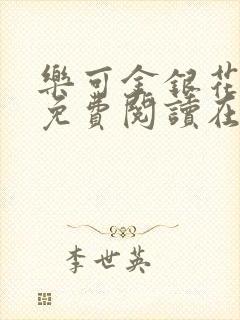 樂可金銀花
免費閱讀在
李世英